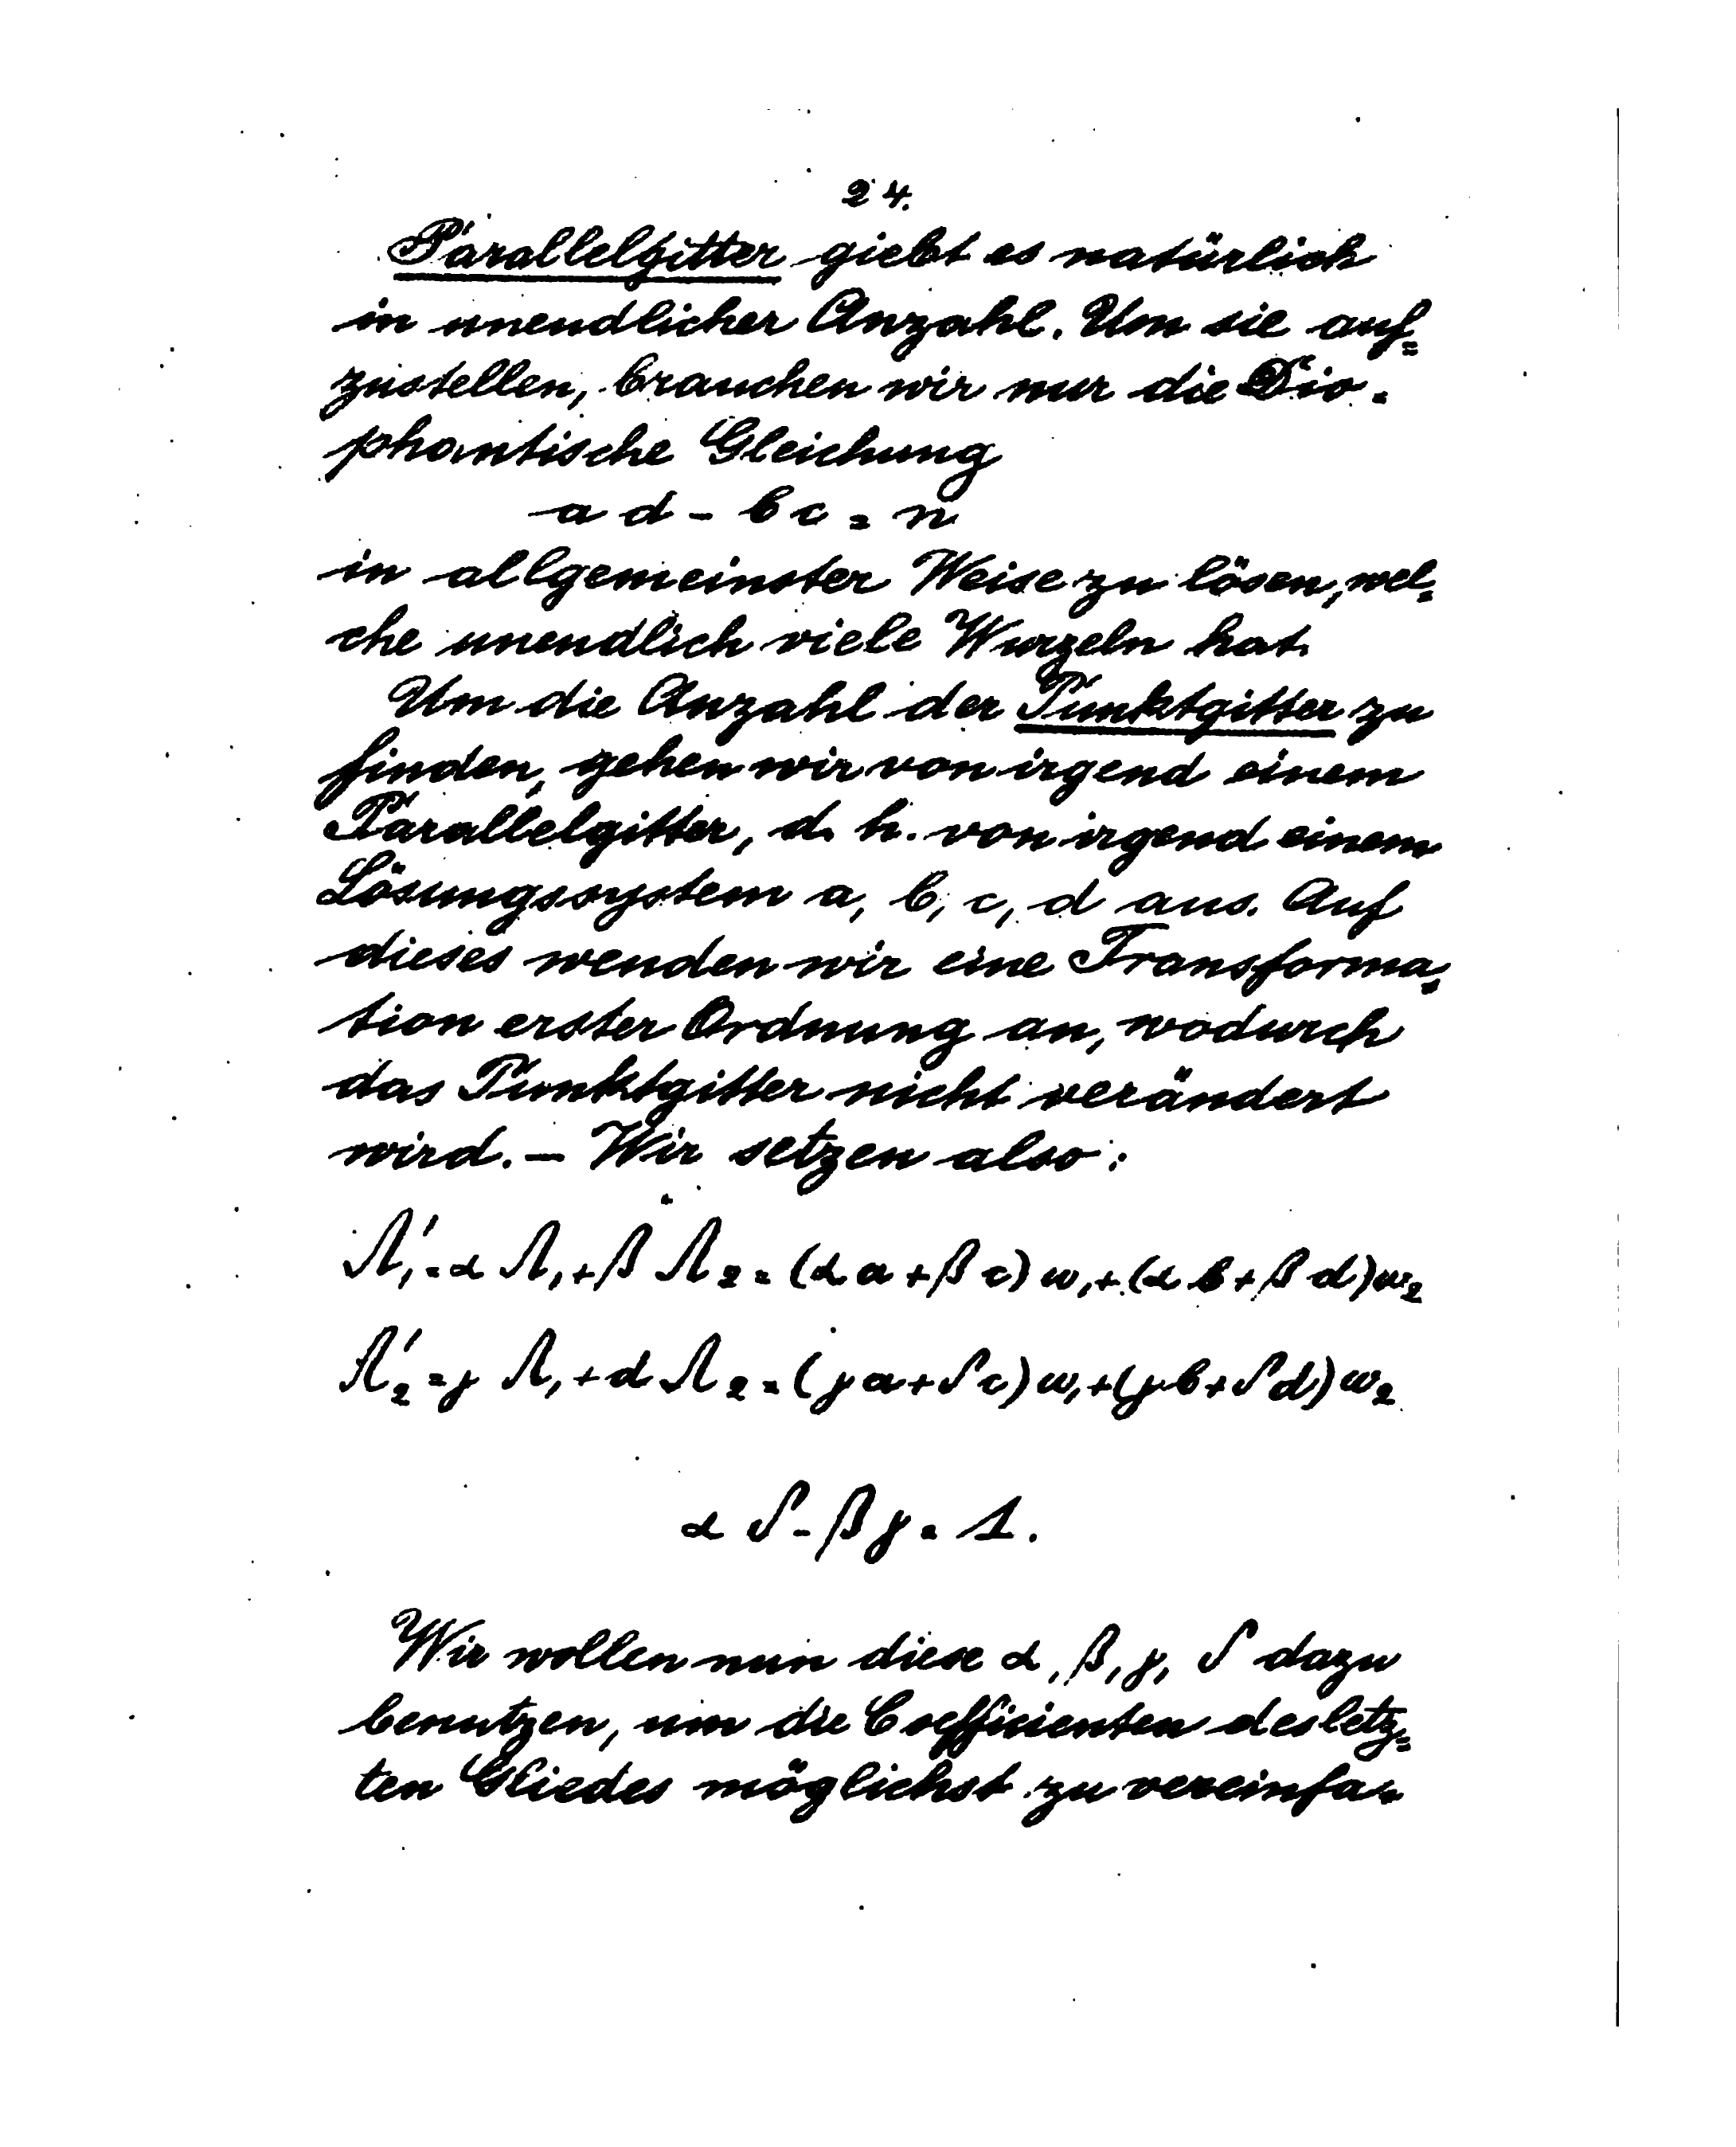 24.
Parallelgitter giebt es natürlich
in unendlicher Anzahl. Um sie auf=
zustellen, brauchen wir nur die Dio-
phantische Gleichung
a d - b c = n
in allgemeinster Weise zu lösen, wel=
che unendlich viele Wurzeln hat.
Um die Anzahl der Punktgitter zu
finden, gehen wir von irgend einem
Parallelgitter, d. h. von irgend einem
Lösungssystem a, b, c, d aus. Auf
dieses wenden wir eine Transforma=
tion erster Ordnung an, wodurch
das Punktgitter nicht verändert
wird. — Wir setzen also:
Λ₁' = α Λ₁ + β Λ₂ = (α a + β c) ω₁ + (α b + β d) ω₂
Λ₂' = γ Λ₁ + d Λ₂ = (γ a + δ c) ω₁ + (γ b + δ d) ω₂
α δ - β γ = 1.
Wir wollen nun diese α, β, γ, δ dazu
benutzen, um die Coefficienten des letz=
ten Gliedes möglichst zu vereinfa=